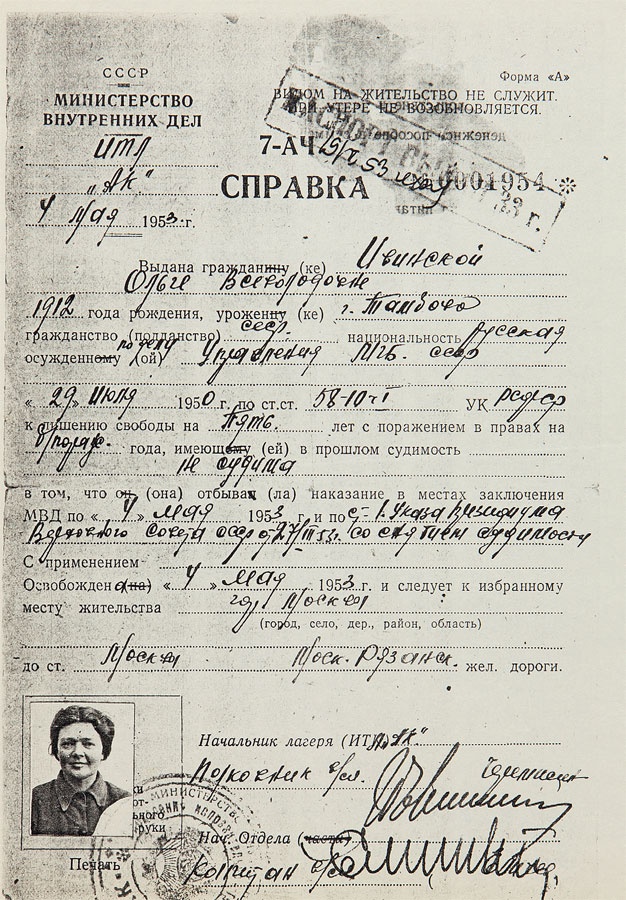 СССР
МИНИСТЕРСТВО
ВНУТРЕННИХ ДЕЛ
ИТЛ
„АК“
4 мая 1953 г.
Форма «А»
ВИДОМ НА ЖИТЕЛЬСТВО НЕ СЛУЖИТ.
ПРИ УТЕРЕ НЕ ВОЗОБНОВЛЯЕТСЯ.
7-АЧ
0001954 *
СПРАВКА
Выдана гражданину (ке) Ивинской
Ольге Всеволодовне
1912 года рождения, уроженцу (ке) г. Тамбова
гражданство (подданство) СССР, национальность русская
осужденному (ой) по делу Управления МГБ. СССР
« 29 » июля 1950 г. по ст.ст. 58-10-I УК РСФСР
к лишению свободы на Пять. лет с поражением в правах на
б/пораж. года, имеющему (ей) в прошлом судимость
не судима
в том, что он, (она) отбывах (ла) наказание в местах заключения
МВД по « 4 » мая 1953 г. и по ст. 1. Указа Президиума
Верховного Совета СССР от 27/III 53г. со снятием судимости
С применением
Освобожден а (на) « 4 » мая 1953 г. и следует к избранному
месту жительства гор. Москва
(город, село, дер., район, область)
до ст. Москва Моск. Рязанск. жел. дороги.
Начальник лагеря (ИТЛ) „АК“
Полковник в/сл.
Нач. Отдела (части)
Печать
Капитан в/сл.
руки
МИНИСТЕРСТВО